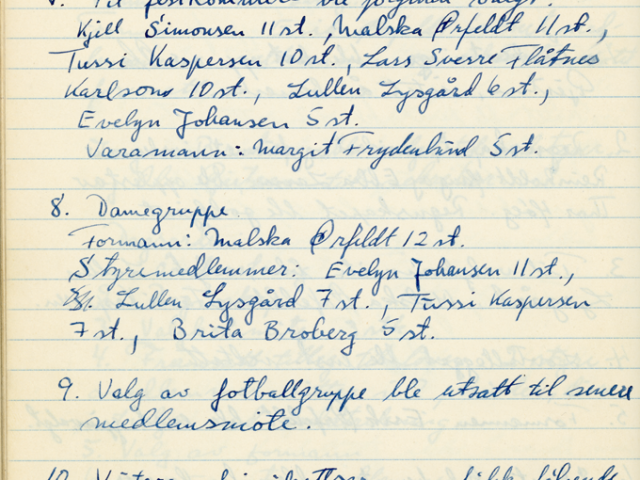 7. Til festkommite ble følgende valgt:
Kjell Simonsen 11 st., Malska Ørfeldt 11 st.,
Tussi Kaspersen 10 st., Lars Sverre Flåtnes
Karlsons 10 st., Lullen Lysgård 6 st.,
Evelyn Johansen 5 st.
Varamann: Margit Frydenlund 5 st.
8. Damegruppe.
Formann: Malska Ørfeldt 12 st.
Styremedlemmer: Evelyn Johansen 11 st.,
Lullen Lysgård 7 st., Tussi Kaspersen
7 st., Brita Broberg 5 st.
9. Valg av fotballgruppe ble utsatt til senere
medlemsmøte.
10.